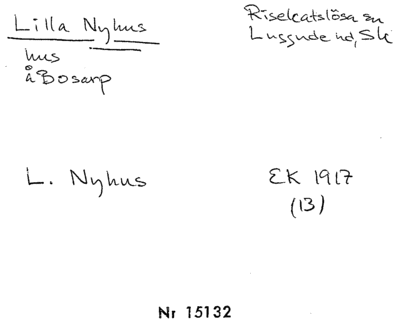 Lilla Nyhus
Risekatslösa sn
Luggude hd, Sk
hus
å Bosarp
L. Nyhus
EK 1917
(13)
Nr 15132